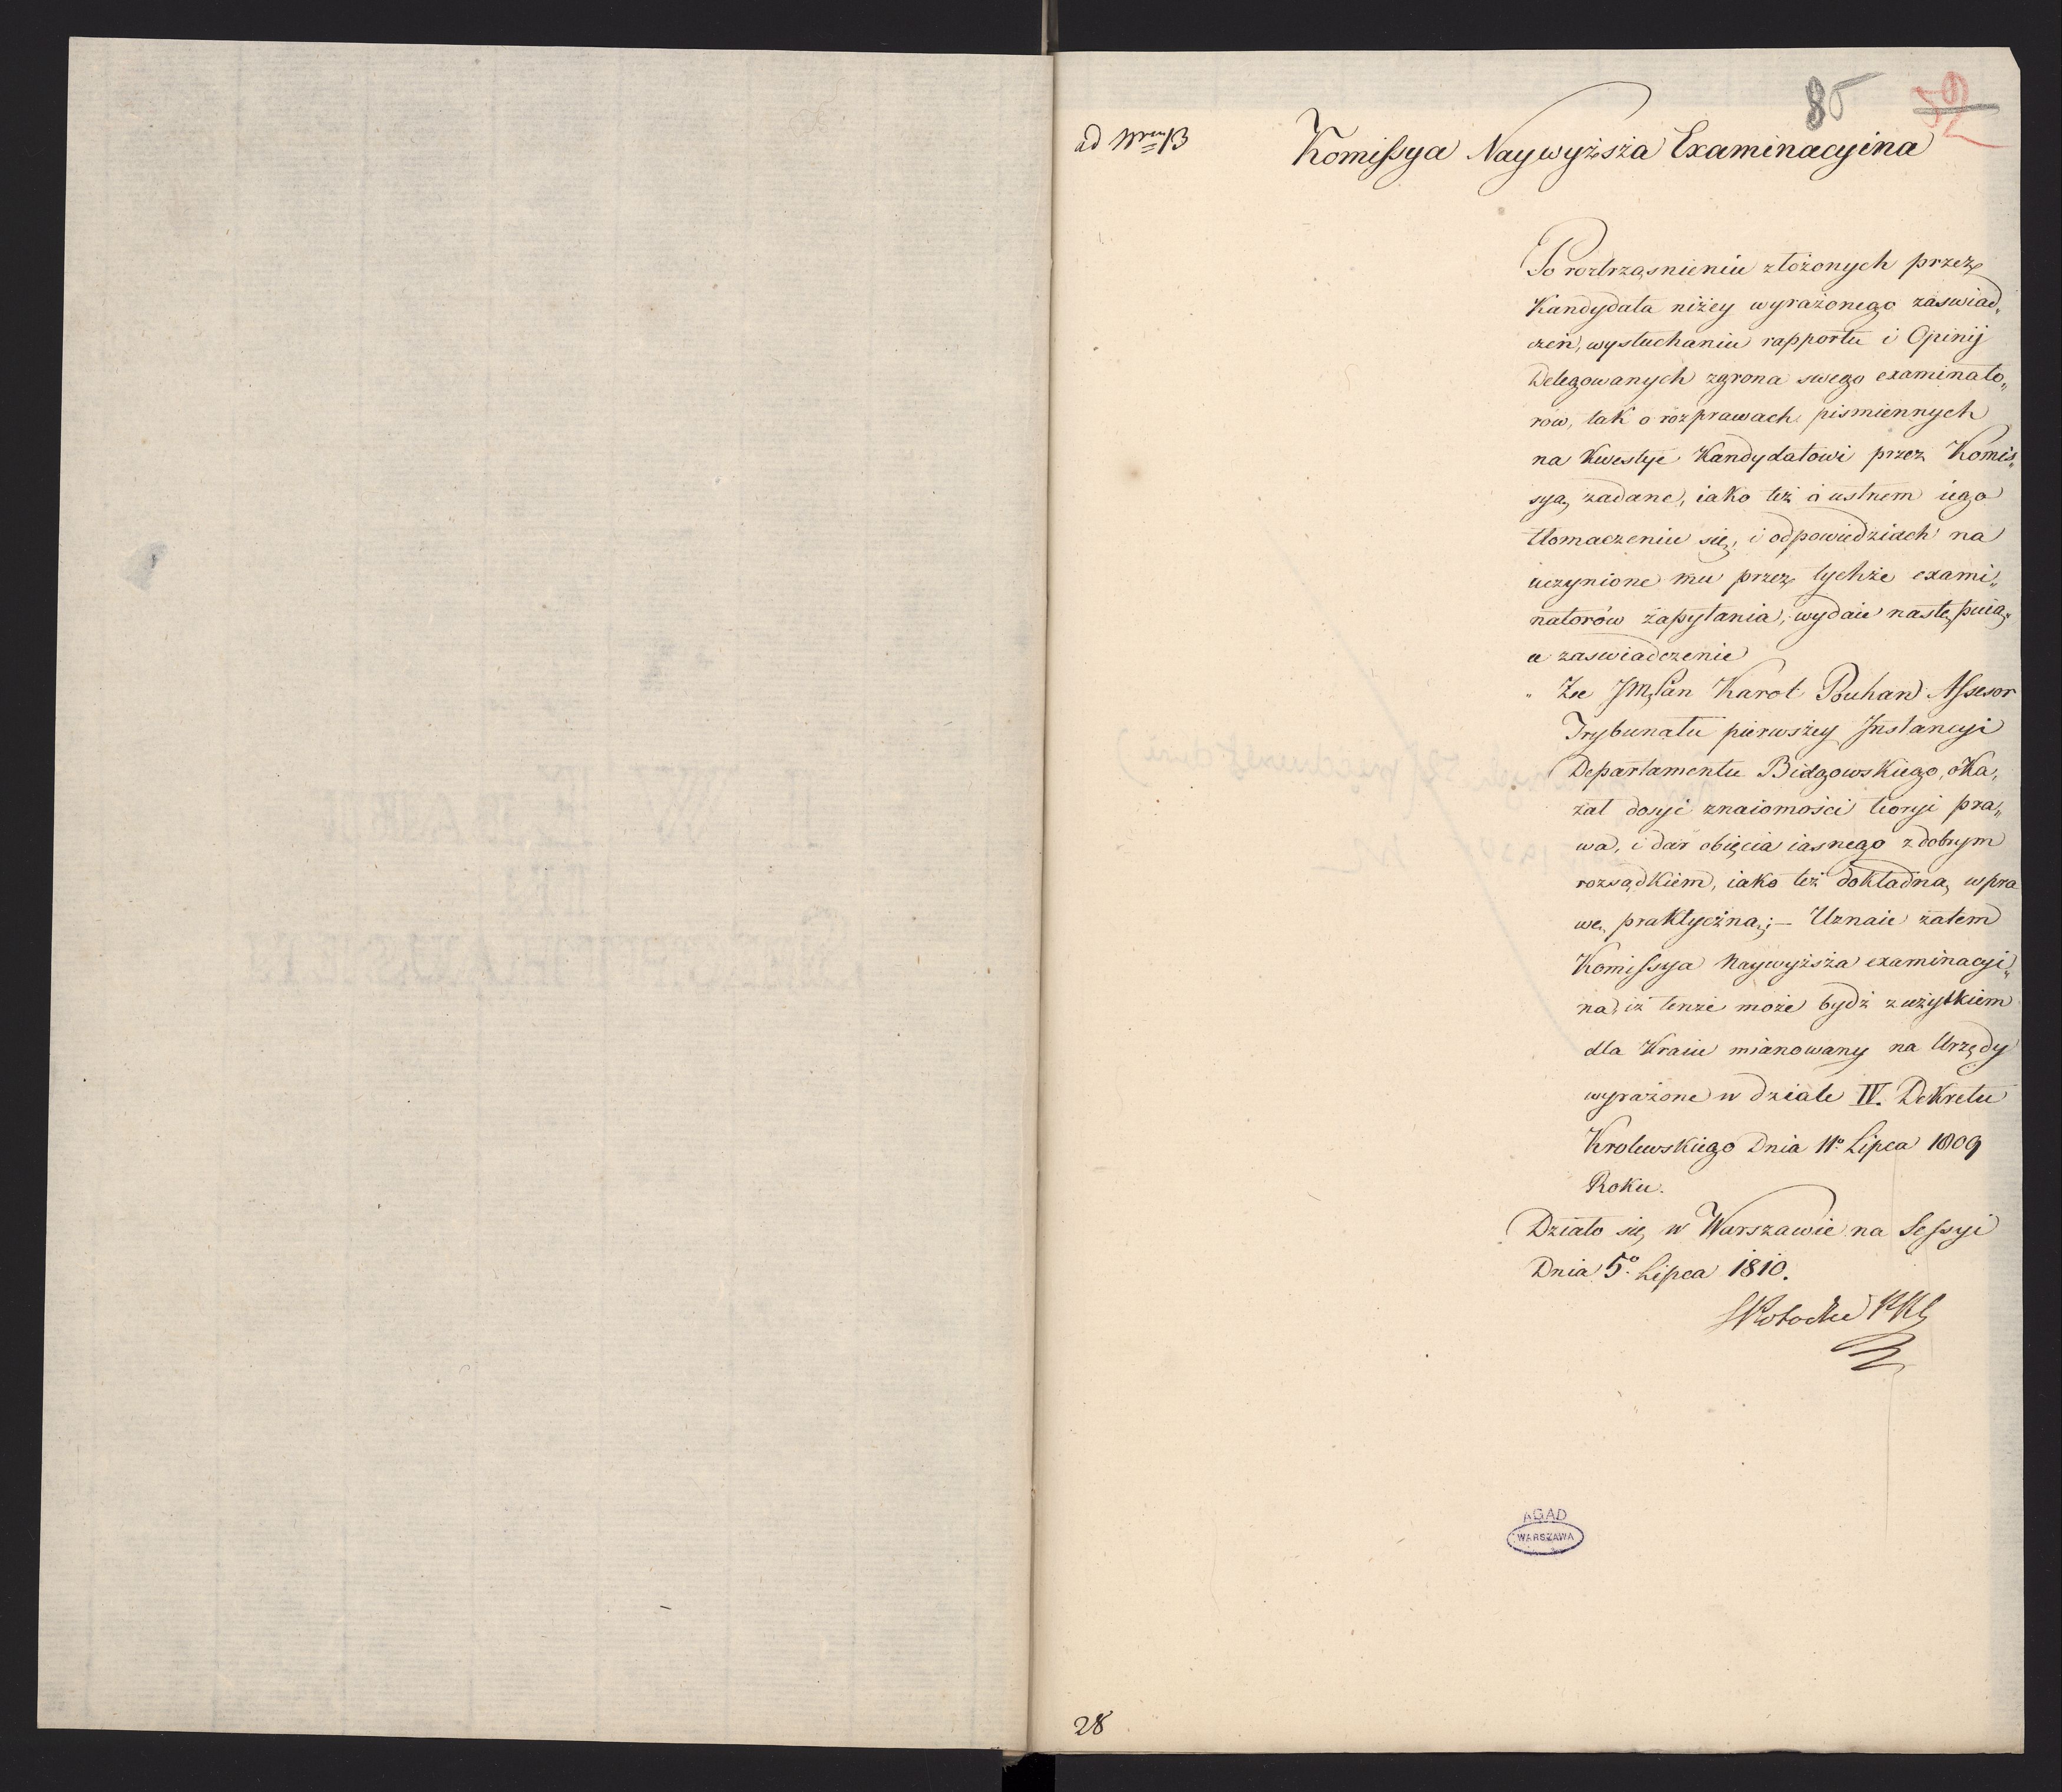 85
59
ad Nrum 13
Komissya Naywyższa Examinacyina
Po roztrząsnieniu złożonych przez
Kandydata niżey wyrażonego zaswiad„
czeń, wysłuchaniu rapportu i Opinij
Delegowanych zgrona swego examinato„
rów, tak o rozprawach pismiennych
na Kwestye Kandydatowi przez Komis„
syą zadane, iako też o ustnem iego
tłomaczeniu się, i odpowiedziach na
uczynione mu przez tychże exami„
natorów zapytania, wydaie następuią„
ce zaswiadczenie
„ Ze JMPan Karol Buhan Assesor
Trybunału pierwszey Instancyi
Departamentu Bidgowskiego, oka„
zał dosyć znaiomości teoryi pra„
wa, i dar obięcia iasnego z dobrym
rozsądkiem, iako też dokładną wpra
wę praktyczną; – Uznaie zatem
Komissya Naywyższa examinacyi„
na, iż tenże może bydż z użytkiem
dla Kraiu mianowany na Urzędy
wyrażone w dziale IV. Dekretu
Krolewskiego Dnia 11o Lipca 1809
Roku.
Działo się w Warszawie na Sessyi
Dnia 5o Lipca 1810.
AGAD
WARSZAWA
28